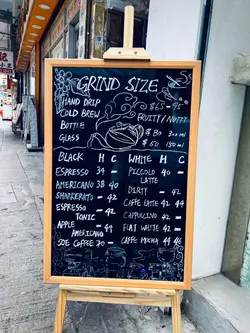 GRIND SIZE
HAND DRIP $65-95
COLD BREW FRUITY/NUTTY
BOTTLE $80 300ml
GLASS $50 150ml
BLACK H C
ESPRESSO 34 -
AMERICANO 38 40
SHAKERATO - 42
ESPRESSO TONIC - 42
APPLE AMERICANO - 44
SOE COFFEE 70 -
WHITE H C
PICCOLO LATTE 40 -
DIRTY - 42
CAFFE LATTE 42 44
CAPPUCCINO 42 -
FLAT WHITE 42 -
CAFFE MOCHA 44 46